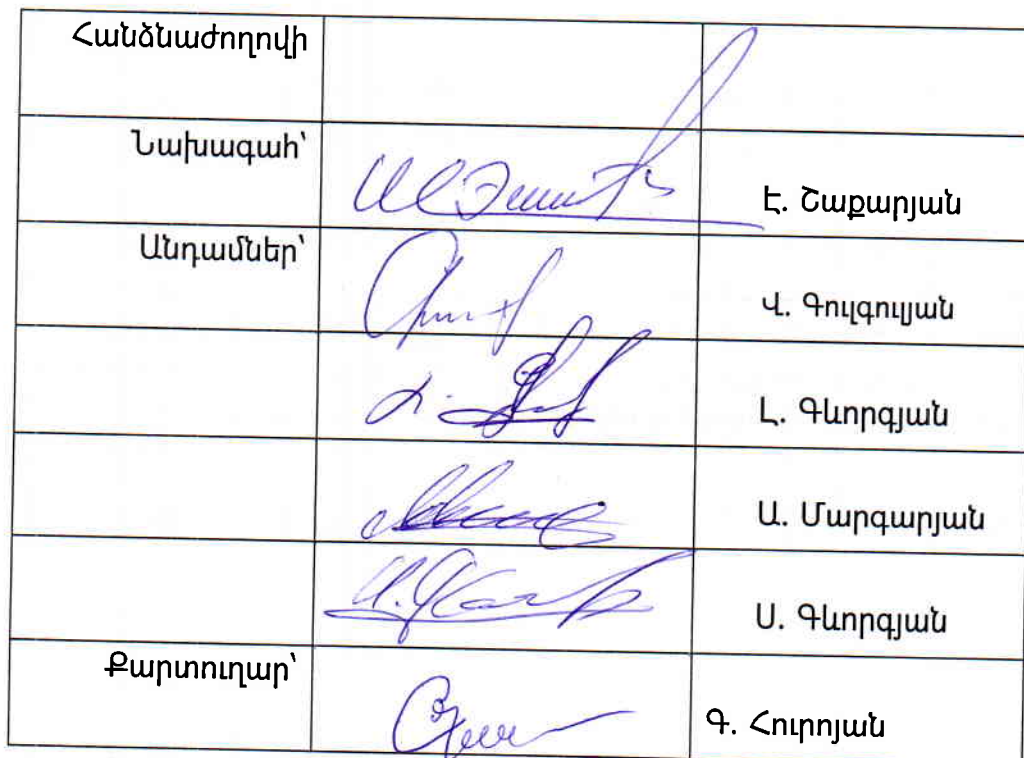 Հանձնաժողովի
Նախագահ՝
Է. Շաքարյան
Անդամներ՝
Վ. Գուլգուլյան
Լ. Գևորգյան
Ա. Մարգարյան
Ս. Գևորգյան
Քարտուղար՝
Գ. Հուրոյան